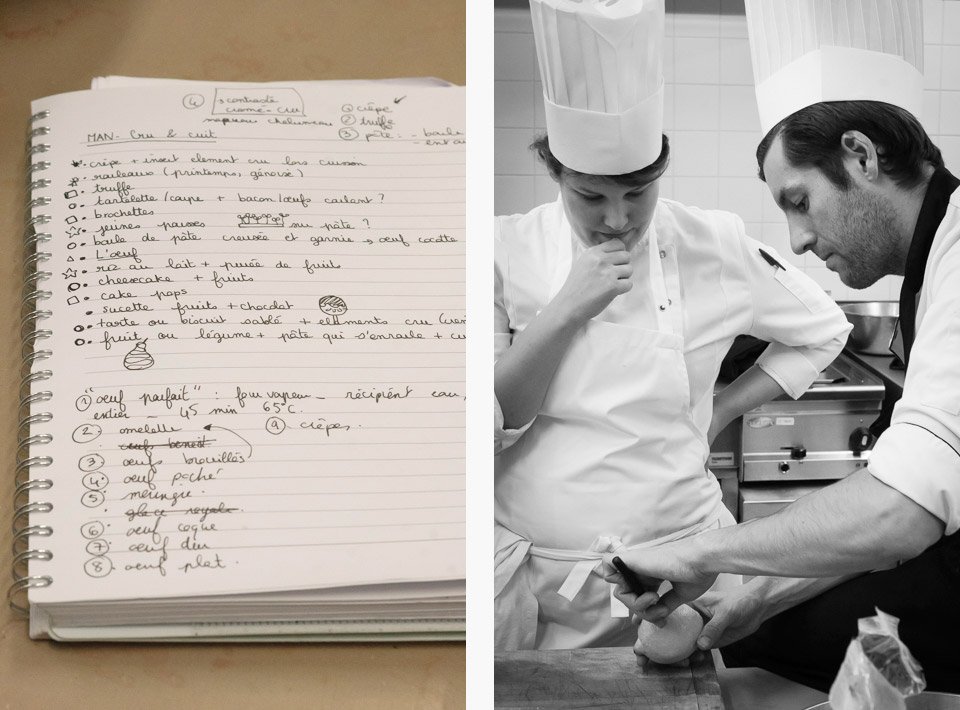 ④ → contrasté
cramé - cru
morceau chalumeau
① crêpe ✓
② truffe
③ pâte : - boule
- en
MAN - Cru & cuit
crêpe + insert element cru lors cuisson
rouleaux (printemps, génoise)
truffe
tartelette / coupe + bacon / œufs coulant ?
brochettes
jeunes pousses sur pâte ?
boule de pâte creusée et garnie → œuf cocotte
L'œuf
riz au lait + purée de fruits
cheesecake + fruits
cake pops
sucette fruits + chocolat
tarte ou biscuit sablé + éléments cru
fruit ou légume + pâte qui s'enroule + cu
① "oeuf parfait" : four vapeur - récipient eau,
entier - 45 min 65°C.
② omelette
⑨ crêpes.
oeufs benedt
③ oeufs brouillés
④ oeuf poché
⑤ meringue.
glace royale.
⑥ oeuf coque
⑦ oeuf dur
⑧ oeuf plat.